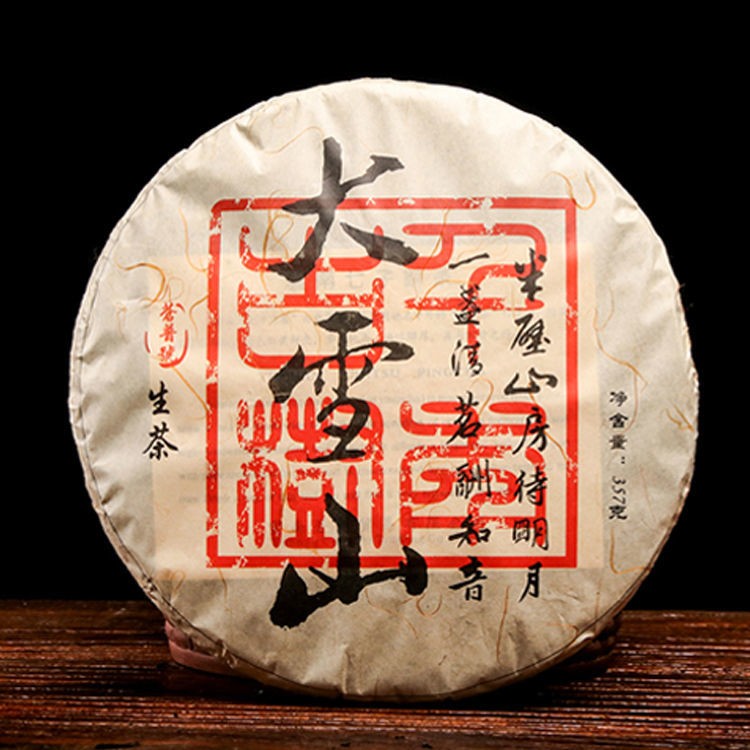 大雪山
半壁山房待明月
一盏清茗酬知音
净含量：357克
生茶